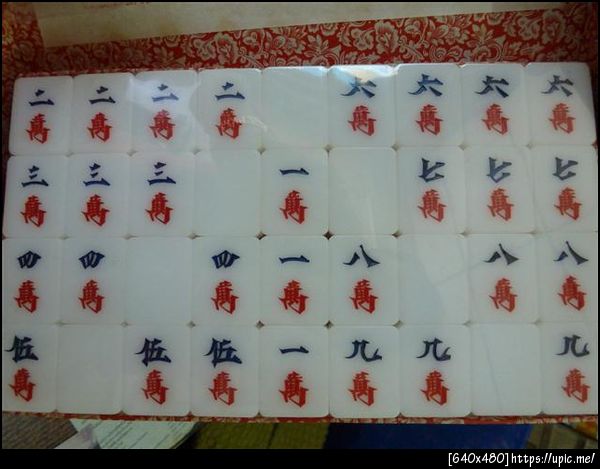 二萬 二萬 二萬 二萬 六萬 六萬 六萬 六萬
三萬 三萬 三萬 一萬 七萬 七萬 七萬
四萬 四萬 四萬 一萬 八萬 八萬 八萬
伍萬 伍萬 伍萬 一萬 九萬 九萬 九萬
[640x480]https://upic.me/